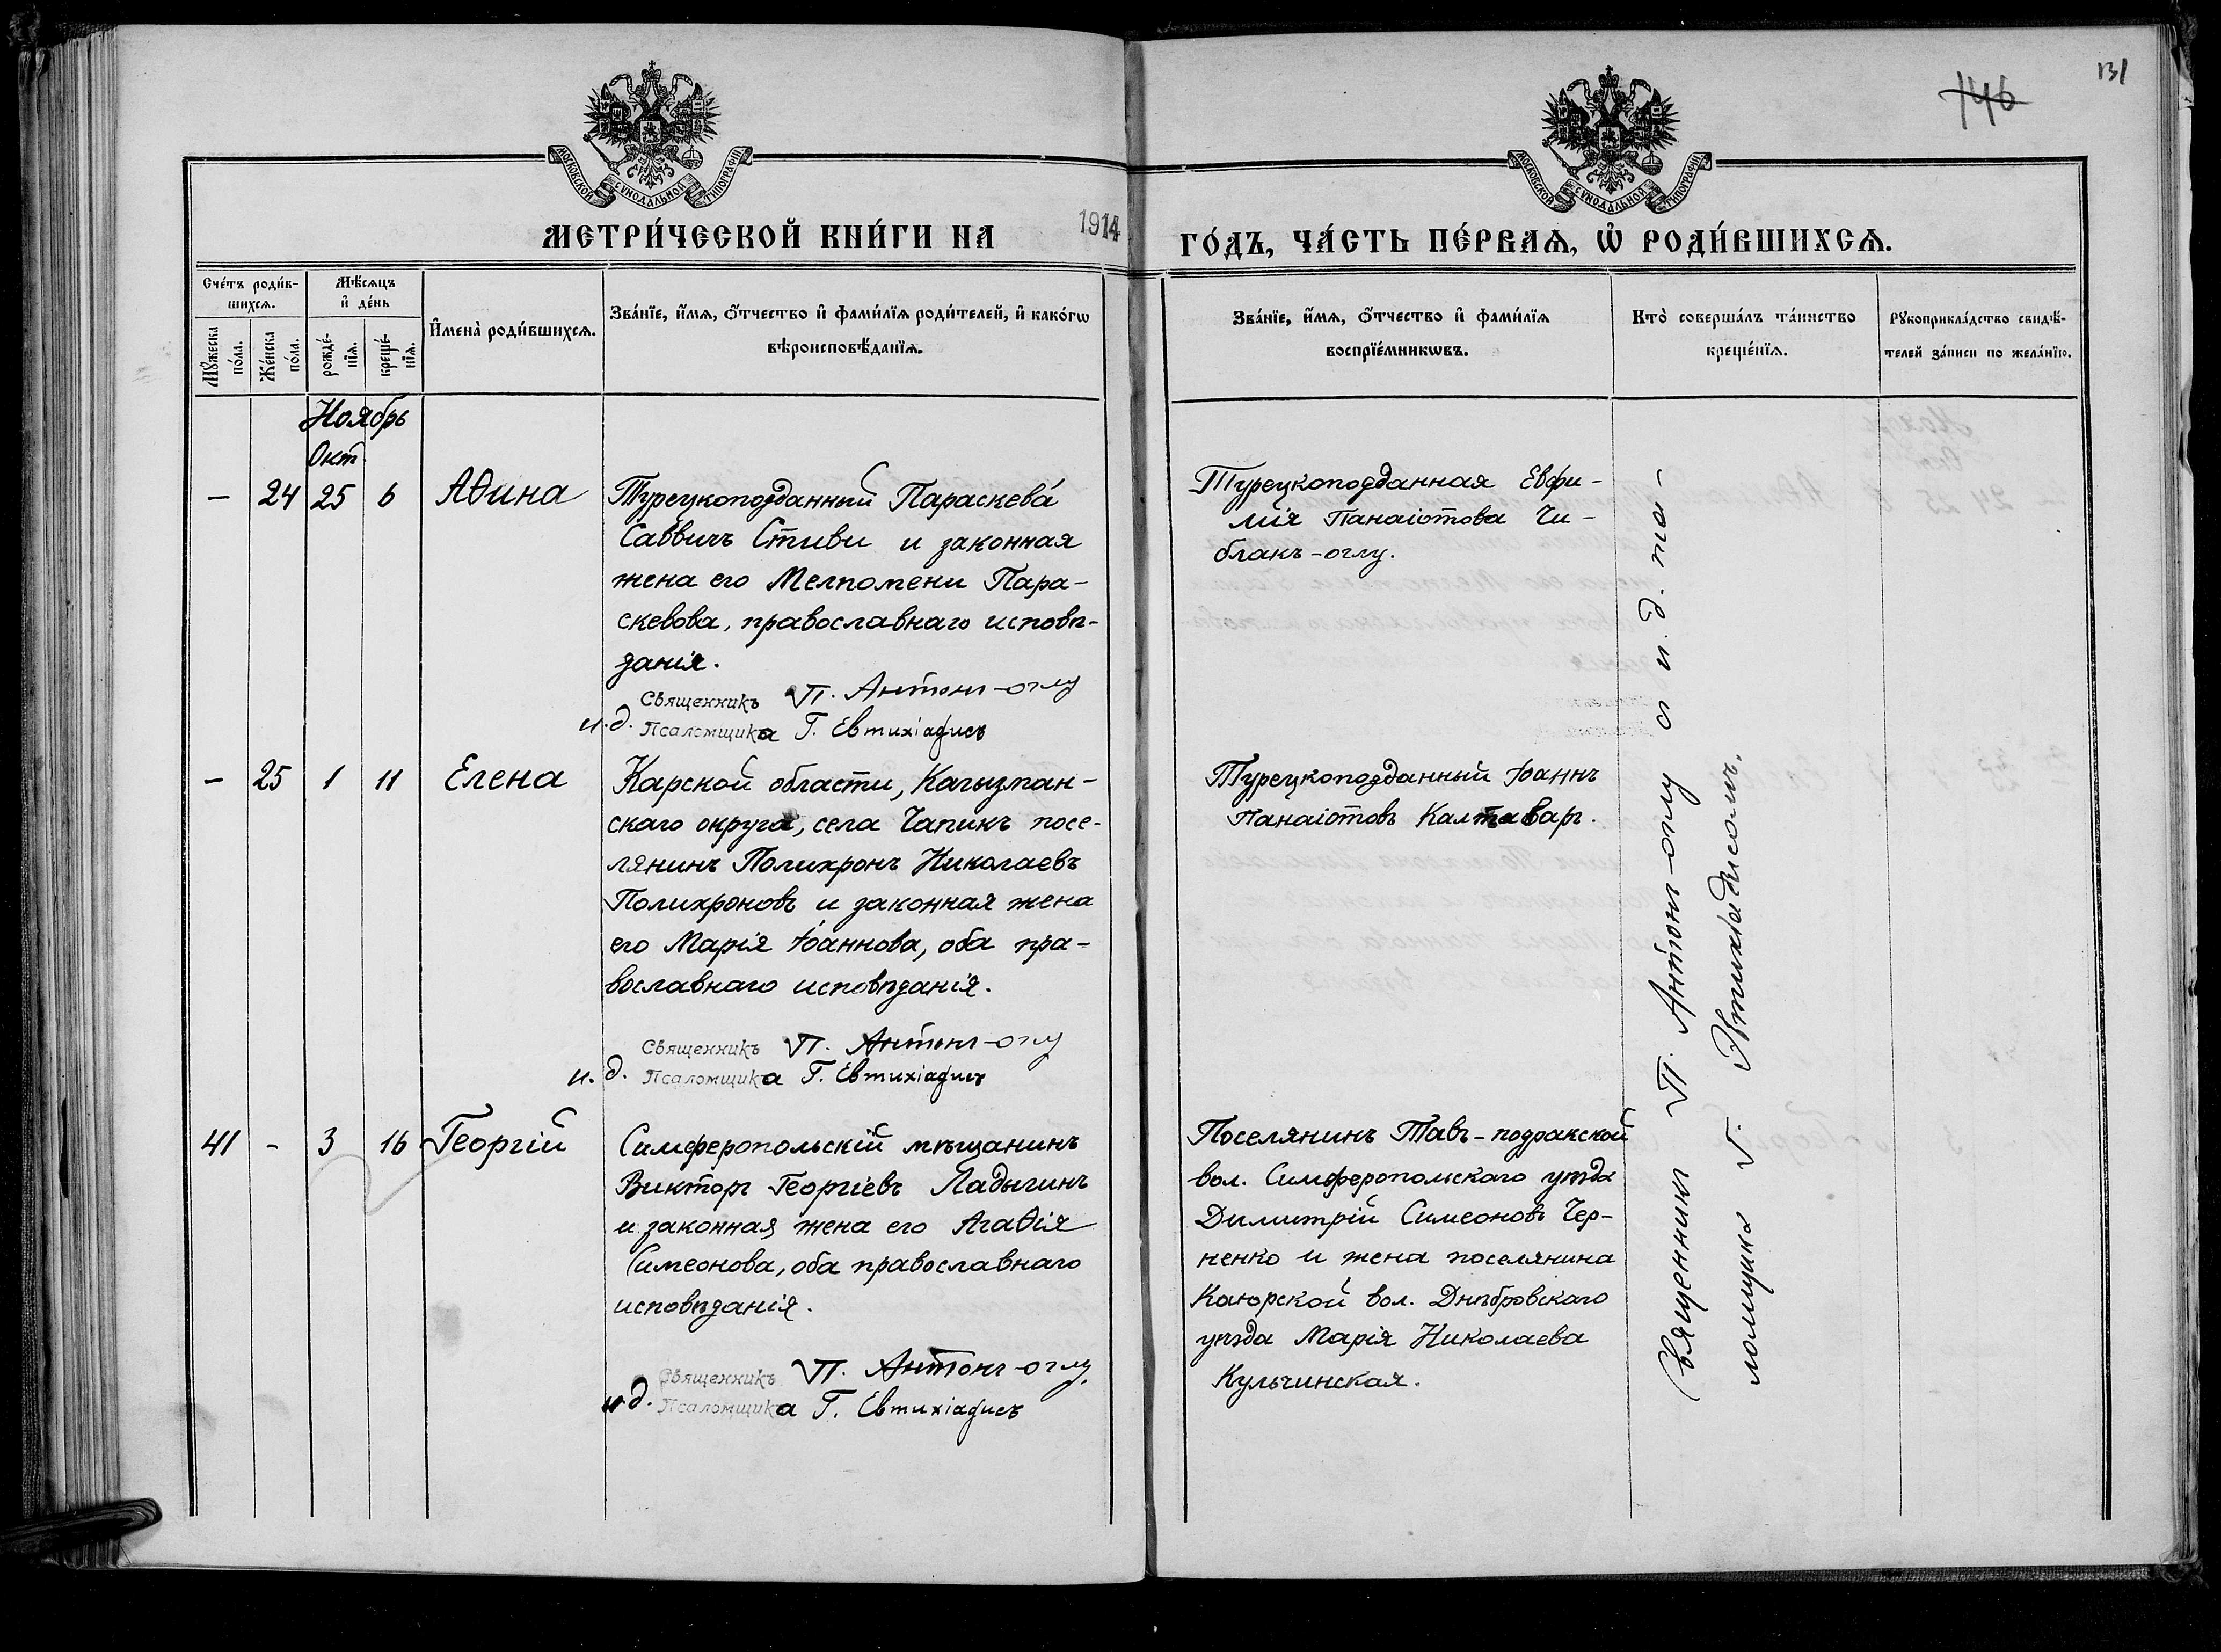 131
146
МОСКОВСКОЙ СѴНОДАЛЬНОЙ ТИПОГРАФІИ
МОСКОВСКОЙ СѴНОДАЛЬНОЙ ТИПОГРАФІИ
МЕТРИ́ЧЕСКОЙ КНИ́ГИ НА 1914 ГО́ДЪ, ЧА́СТЬ ПЕ́РВАѦ, Ѡ҆ РОДИ́ВШИХСѦ.
Сче́тъ роди́в-
шихсѧ.
Мꙋ́жеска
по́ла.
Же́нска
по́ла.
Мѣ́сѧцъ
и҆ де́нь
рожде́-
нїѧ.
креще́-
нїѧ.
И҆мена̀ роди́вшихсѧ.
Зва́нїе, и҆́мѧ, ѻ҆́тчество и҆ фами́лїѧ роди́телей, и҆ како́гѡ
вѣроисповѣ́данїѧ.
Зва́нїе, и҆́мѧ, ѻ҆́тчество и҆ фами́лїѧ
воспрїе́мникѡвъ.
Кто̀ соверша́лъ та́инство
креще́нїѧ.
Рꙋкоприкла́дство свидѣ́-
телей за́писи по жела́нїю.
Ноябрь
Окт.
— 24 25 6 Аѳина
Турецкоподданный Параскева́
Саввичъ Стиви и законная
жена его Мелпомени Пара-
скевова, православнаго исповѣ-
данія.
Священникъ П. Антонъ-оглу
и. д. Псаломщика Г. Евтихіадисъ
Турецкоподданная Евфи-
мія Панаіотова Чи-
блакъ-оглу.
— 25 1 11 Елена
Карской области, Кагызман-
скаго округа, села Чапикъ посе-
лянинъ Полихронъ Николаевъ
Полихроновъ и законная жена
его Марія Іоаннова, оба пра-
вославнаго исповѣданія.
Священникъ П. Антонъ-оглу
и. д. Псаломщика Г. Евтихіадисъ
Турецкоподданный Іоаннъ
Панаіотовъ Калтаваръ.
41 - 3 16 Георгій
Симферопольскій мѣщанинъ
Викторъ Георгіевъ Ладыгинъ
и законная жена его Агаѳія
Симеонова, оба православнаго
исповѣданія.
Священникъ П. Антонъ-оглу.
и. д. Псаломщика Г. Евтихіадисъ
Поселянинъ Тавъ-подракской
вол. Симферопольскаго уѣзда
Димитрій Симеоновъ Чер-
ненко и жена поселянина
Каюрской вол. Днѣпровскаго
уѣзда Марія Николаева
Кульчинская.
Священникъ П. Антонъ-оглу съ и. д. пса-
ломщика Г. Евтихіадисомъ.